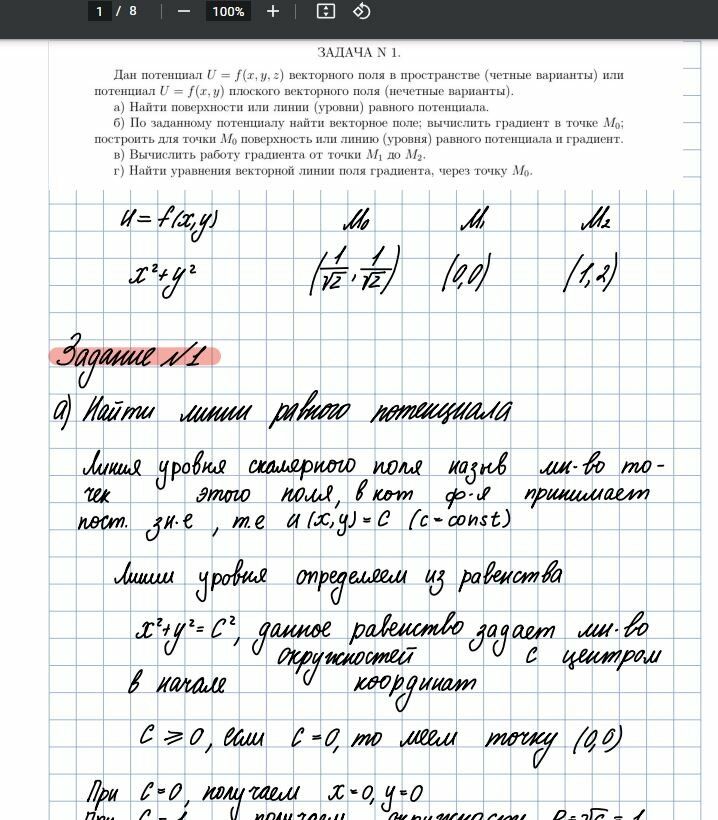 1 / 8 100%
ЗАДАЧА N 1.
Дан потенциал U = f(x, y, z) векторного поля в пространстве (четные варианты) или
потенциал U = f(x, y) плоского векторного поля (нечетные варианты).
а) Найти поверхности или линии (уровни) равного потенциала.
б) По заданному потенциалу найти векторное поле; вычислить градиент в точке M₀;
построить для точки M₀ поверхность или линию (уровня) равного потенциала и градиент.
в) Вычислить работу градиента от точки M₁ до M₂.
г) Найти уравнения векторной линии поля градиента, через точку M₀.
u = f(x,y) M₀ M₁ M₂
x²+y² (1/√2, 1/√2) (0,0) (1,2)
Задание №1
а) Найти линии равного потенциала
Линия уровня скалярного поля назыв мн-во то-
чек этого поля, в кот ф-я принимает
пост. зн-е, т.е u(x,y) = C (c = const)
Линии уровня определяем из равенства
x²+y² = C², данное равенство задает мн-во
окружностей с центром
в начале координат
C ⩾ 0, если C = 0, то меем точку (0,0)
При C = 0, получаем x = 0, y = 0
При C = 1 получаем окружность R = √C = 1